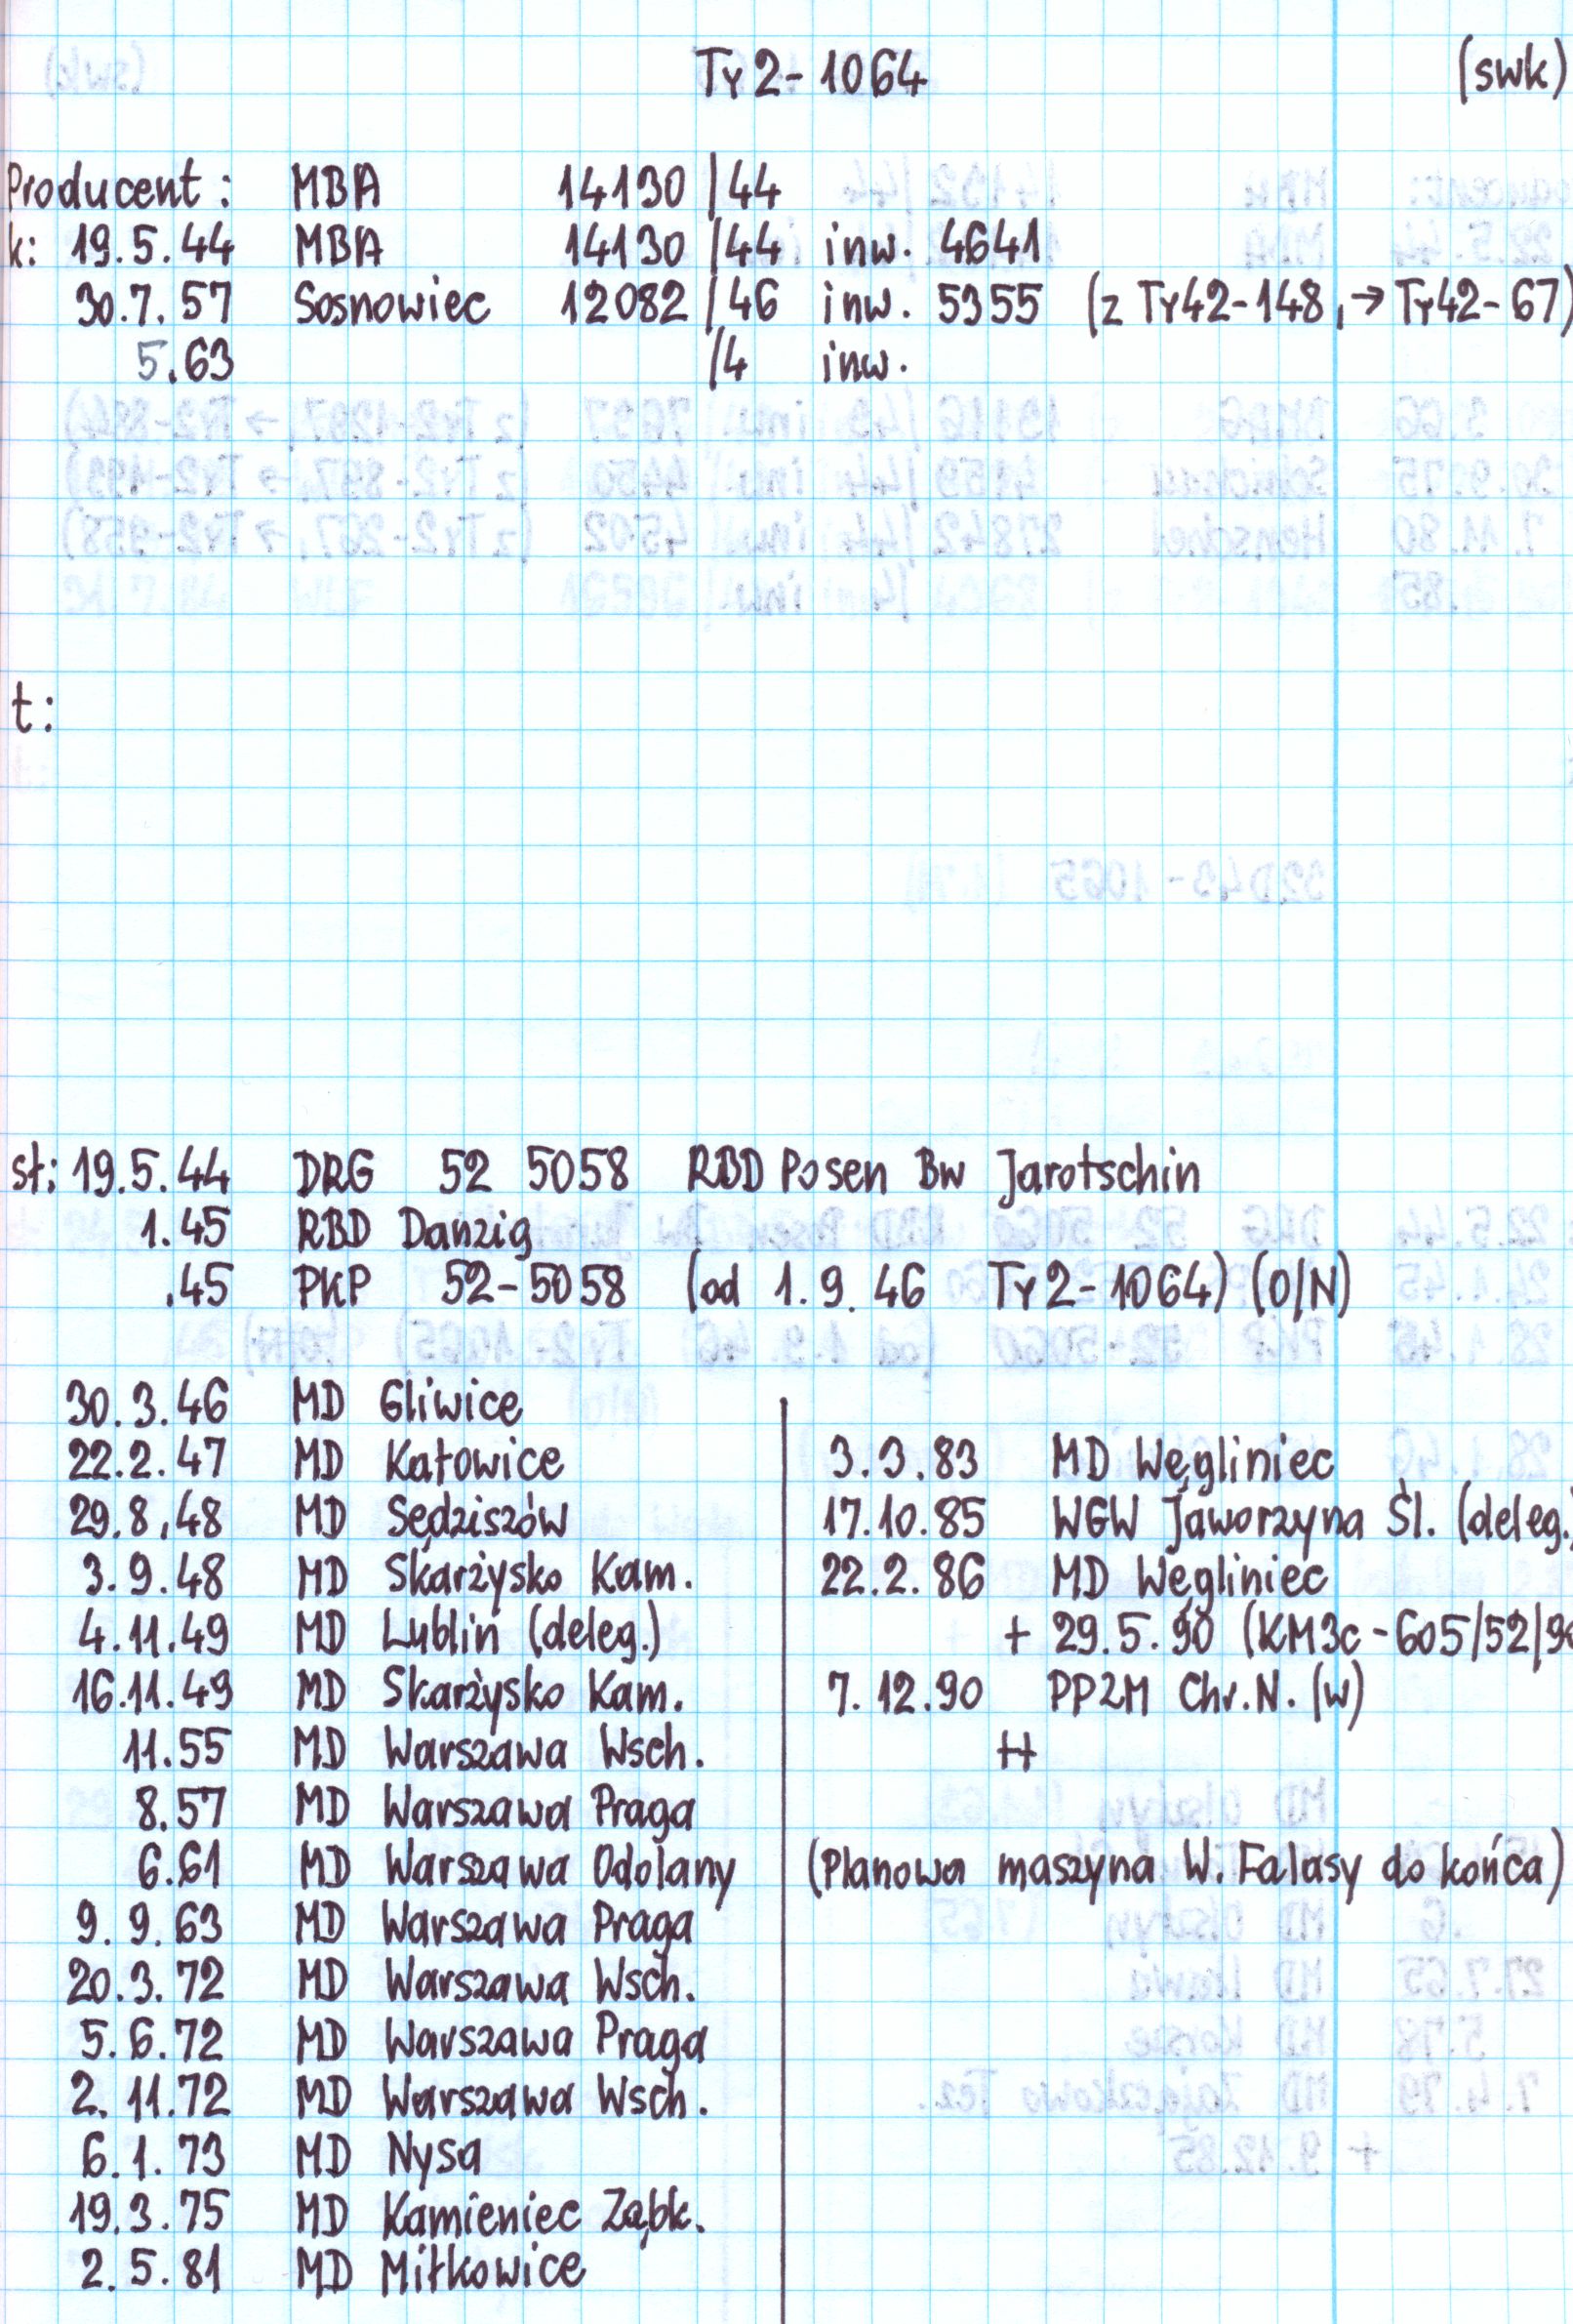 Ty2-1064 (swk)
Producent: MBA 14130 /44
k: 19.5.44 MBA 14130 /44 inw. 4641
30.7.57 Sosnowiec 12082 /46 inw. 5355 (z Ty42-148, → Ty42-67)
5.63 /4 inw.
t:
st: 19.5.44 DRG 52 5058 RBD Posen Bw Jarotschin
1.45 RBD Danzig
.45 PKP 52-5058 (od 1.9.46 Ty2-1064) (O/N)
30.3.46 MD Gliwice
22.2.47 MD Katowice
29.8.48 MD Sędziszów
3.9.48 MD Skarżysko Kam.
4.11.49 MD Lublin (deleg.)
16.11.49 MD Skarżysko Kam.
11.55 MD Warszawa Wsch.
8.57 MD Warszawa Praga
6.61 MD Warszawa Odolany
9.9.63 MD Warszawa Praga
20.3.72 MD Warszawa Wsch.
5.6.72 MD Warszawa Praga
2.11.72 MD Warszawa Wsch.
6.1.73 MD Nysa
19.3.75 MD Kamieniec Ząbk.
2.5.81 MD Miłkowice
3.3.83 MD Węgliniec
17.10.85 WGW Jaworzyna Śl. (deleg.)
22.2.86 MD Węgliniec
+ 29.5.90 (KM3c-605/52/90
7.12.90 PPZM Chr.N. (w)
++
(Planowa maszyna W. Falasy do końca)